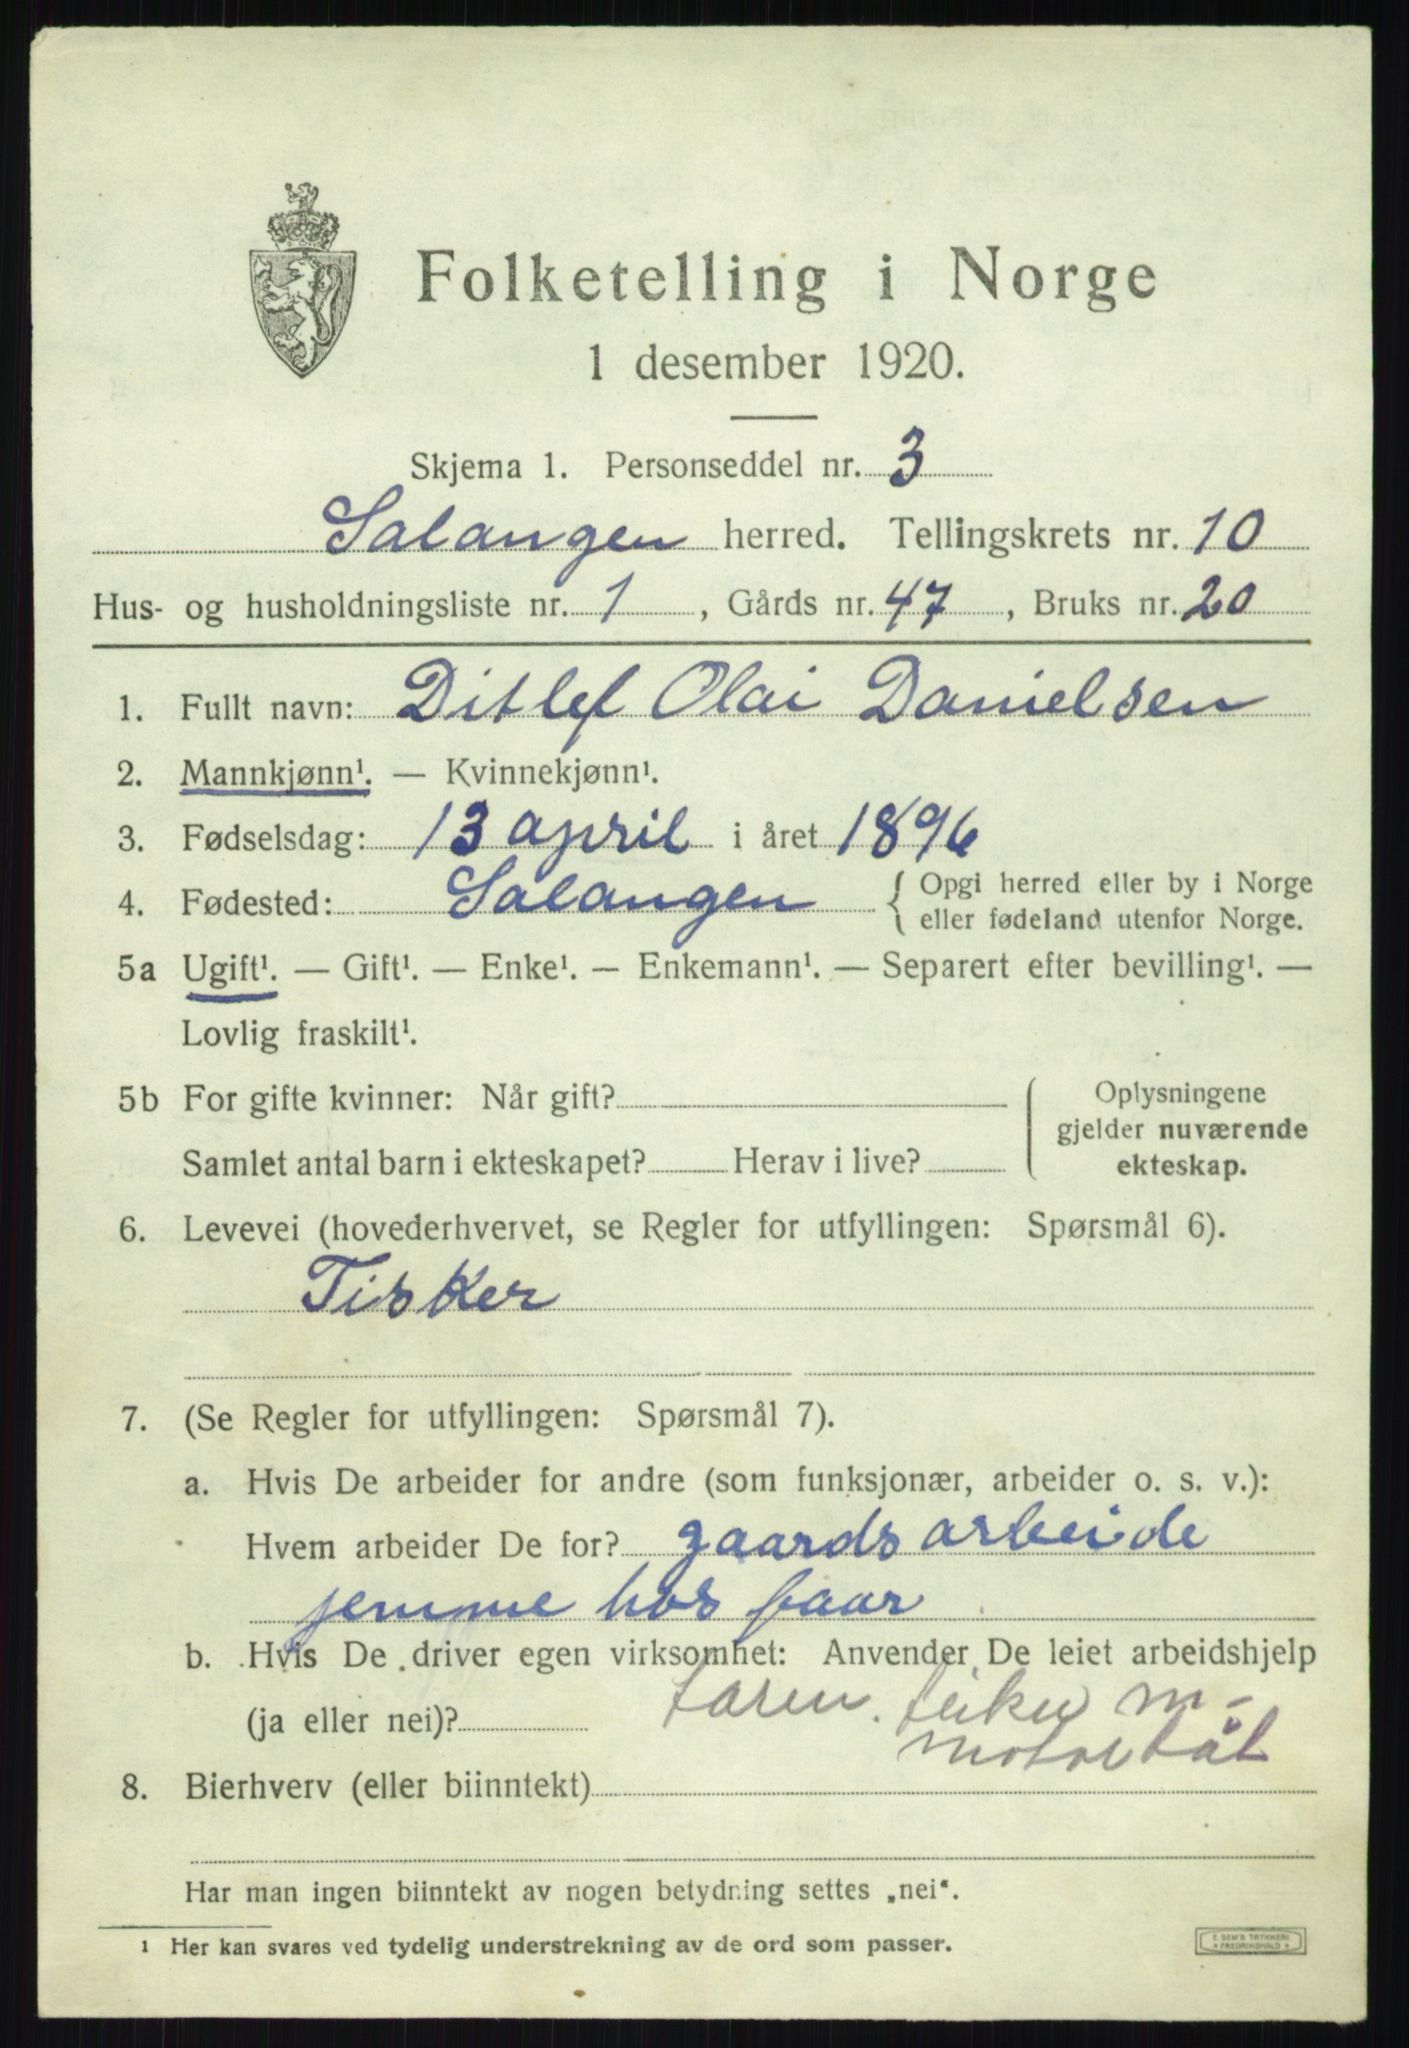 Folketelling i Norge
1 desember 1920.
Skjema 1. Personseddel nr. 3
Salangen herred. Tellingskrets nr. 10
Hus- og husholdningsliste nr. 1, Gårds nr. 47, Bruks nr. 20
1. Fullt navn: Ditlef Olai Danielsen
2. Mannkjønn¹. — Kvinnekjønn¹.
3. Fødselsdag: 13 april i året 1896
4. Fødested: Salangen { Opgi herred eller by i Norge
eller fødeland utenfor Norge.
5a Ugift¹. — Gift¹. — Enke¹. — Enkemann¹. — Separert efter bevilling¹. —
Lovlig fraskilt¹.
5b For gifte kvinner: Når gift?
Samlet antal barn i ekteskapet? Herav i live?
Oplysningene
gjelder nuværende
ekteskap.
6. Levevei (hovederhvervet, se Regler for utfyllingen: Spørsmål 6).
Fisker
7. (Se Regler for utfyllingen: Spørsmål 7).
a. Hvis De arbeider for andre (som funksjonær, arbeider o. s. v.):
Hvem arbeider De for? gaards arbeide
jemme hos faar
b. Hvis De driver egen virksomhet: Anvender De leiet arbeidshjelp
(ja eller nei)?
m-
motorbåt
8. Bierhverv (eller biinntekt)
Har man ingen biinntekt av nogen betydning settes „nei“.
¹ Her kan svares ved tydelig understrekning av de ord som passer.
E. SEM'S TRYKKERI
FREDRIKSHALD